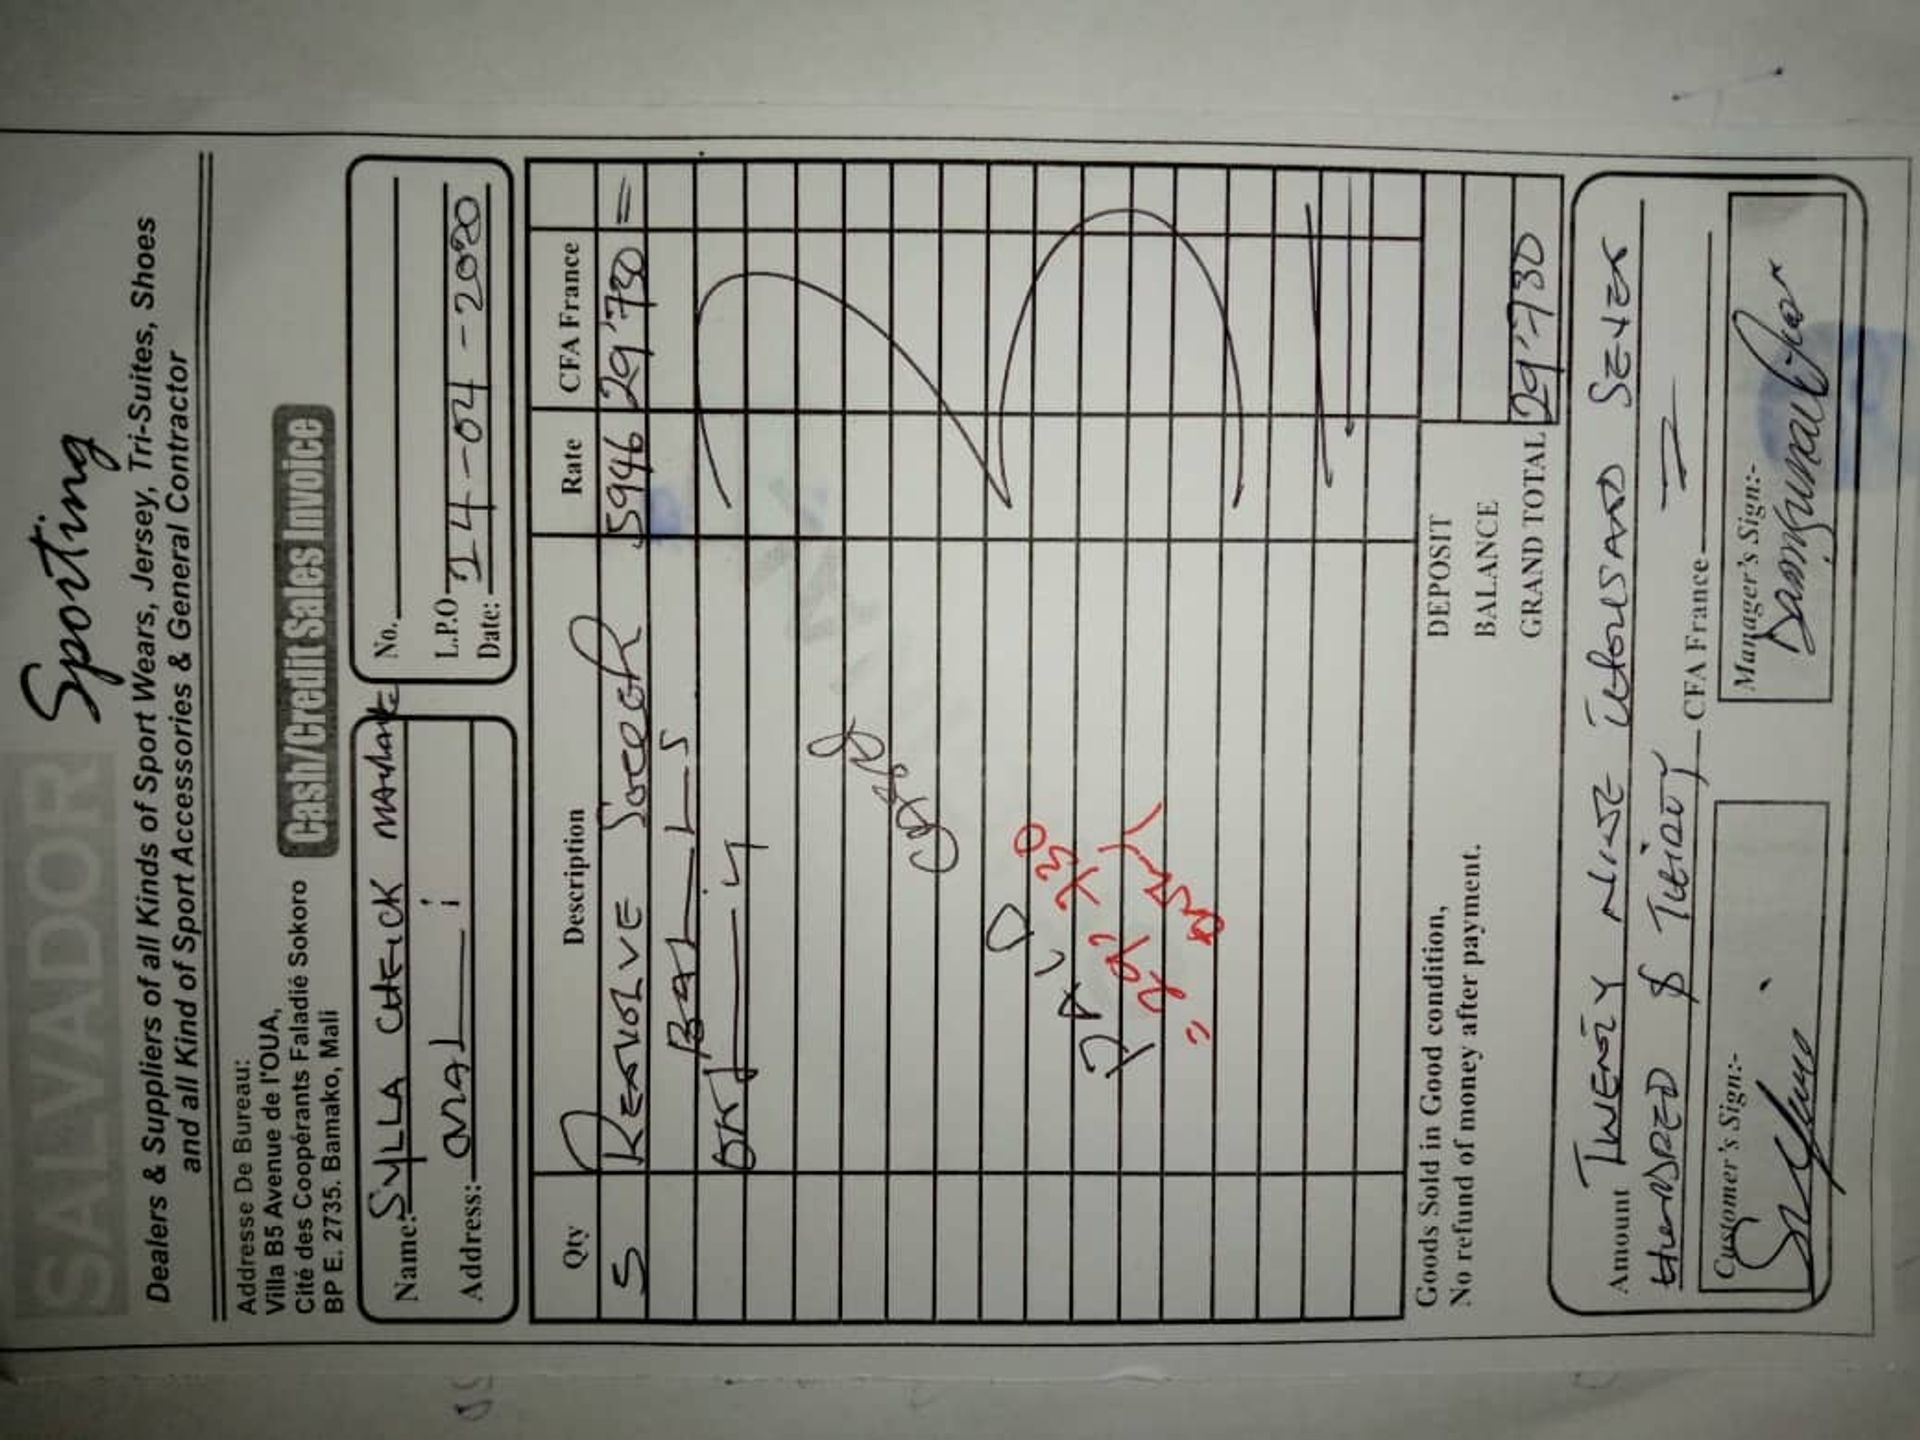 SALVADOR Sporting
Dealers & Suppliers of all Kinds of Sport Wears, Jersey, Tri-Suites, Shoes
and all Kind of Sport Accessories & General Contractor
Addresse De Bureau:
Villa B5 Avenue de l'OUA,
Cité des Coopérants Faladié Sokoro
BP E. 2735. Bamako, Mali
Cash/Credit Sales Invoice
Name: SYLLA CHEICK
Address:
No.
L.P.O
Date: 14-04-2020
Qty Description Rate CFA France
5 5946 29'730 =
BALLS
ONLY
29'730
Goods Sold in Good condition,
No refund of money after payment.
DEPOSIT
BALANCE
GRAND TOTAL 29'730
Amount TWENTY NINE THOUSAND SEVEN
HUNDRED & THIRTY CFA France
Customer's Sign:-
Manager's Sign:-